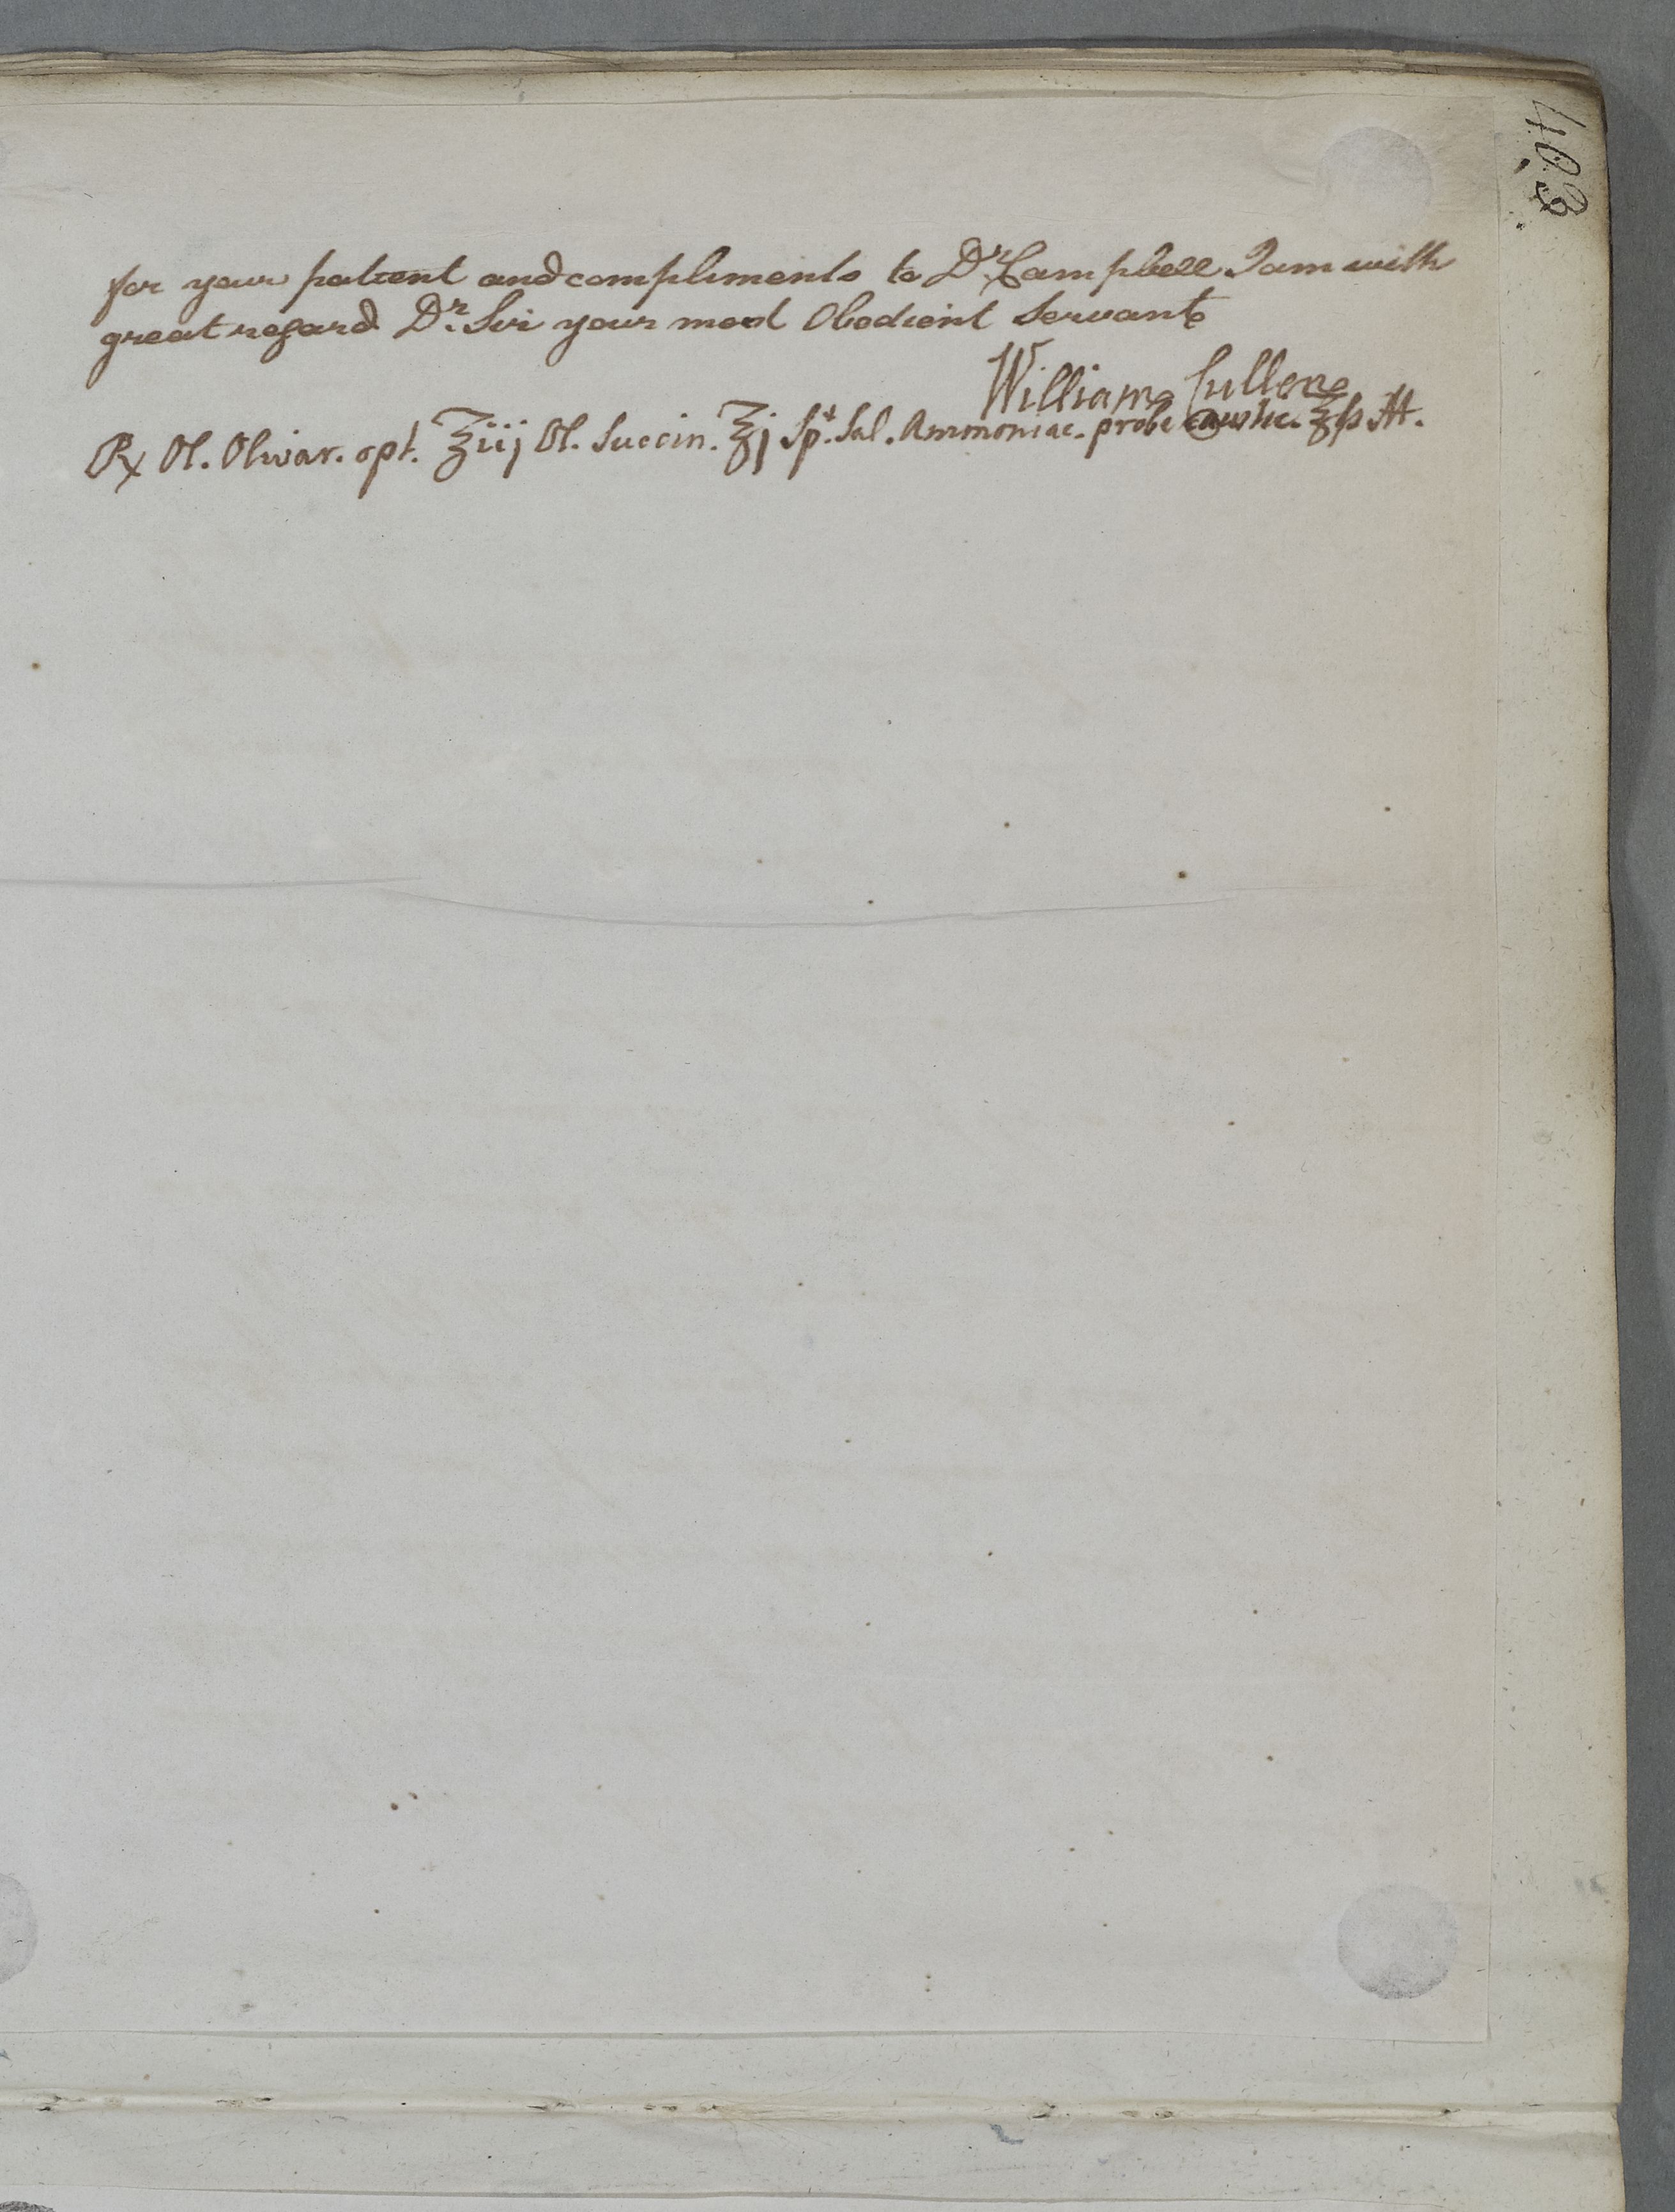 403
for your patient and compliments to Dr. Campbell I am with
great regard Dr. Sir your most Obedient Servant
William Cullen
℞ Ol. Olivar. opt. ℥iij Ol. Succin. ℥j Spt. Sal. Ammoniac. probe caustic. ℥ß M.